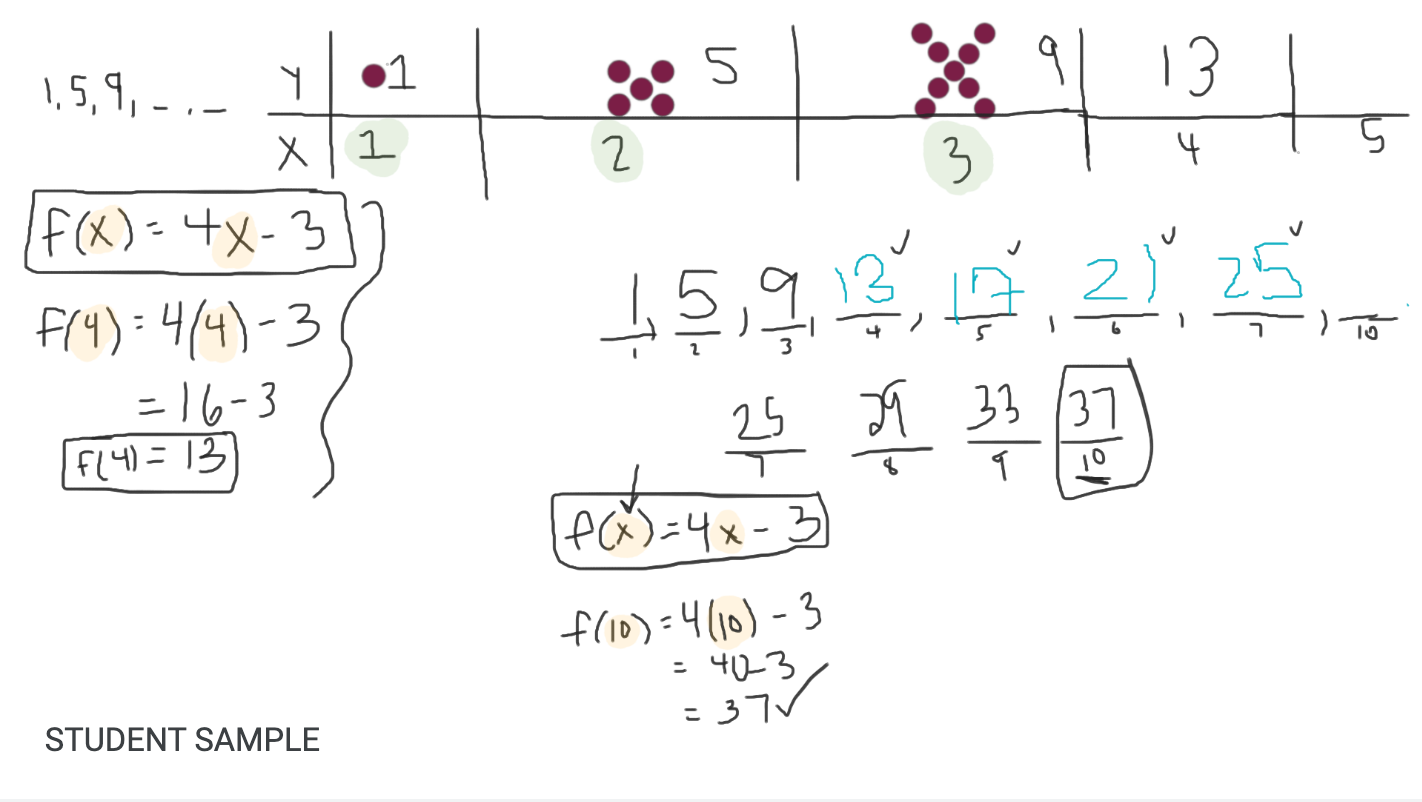 1, 5, 9, _ . _
Y 1 5 9 13
X 1 2 3 4 5
f(x) = 4x - 3
f(4) = 4(4) - 3
= 16 - 3
f(4) = 13
1, 5, 9, 13, 17, 21, 25, __
1 2 3 4 5 6 7 10
25 29 33 37
7 8 9 10
f(x) = 4x - 3
f(10) = 4(10) - 3
= 40 - 3
= 37 ✓
STUDENT SAMPLE